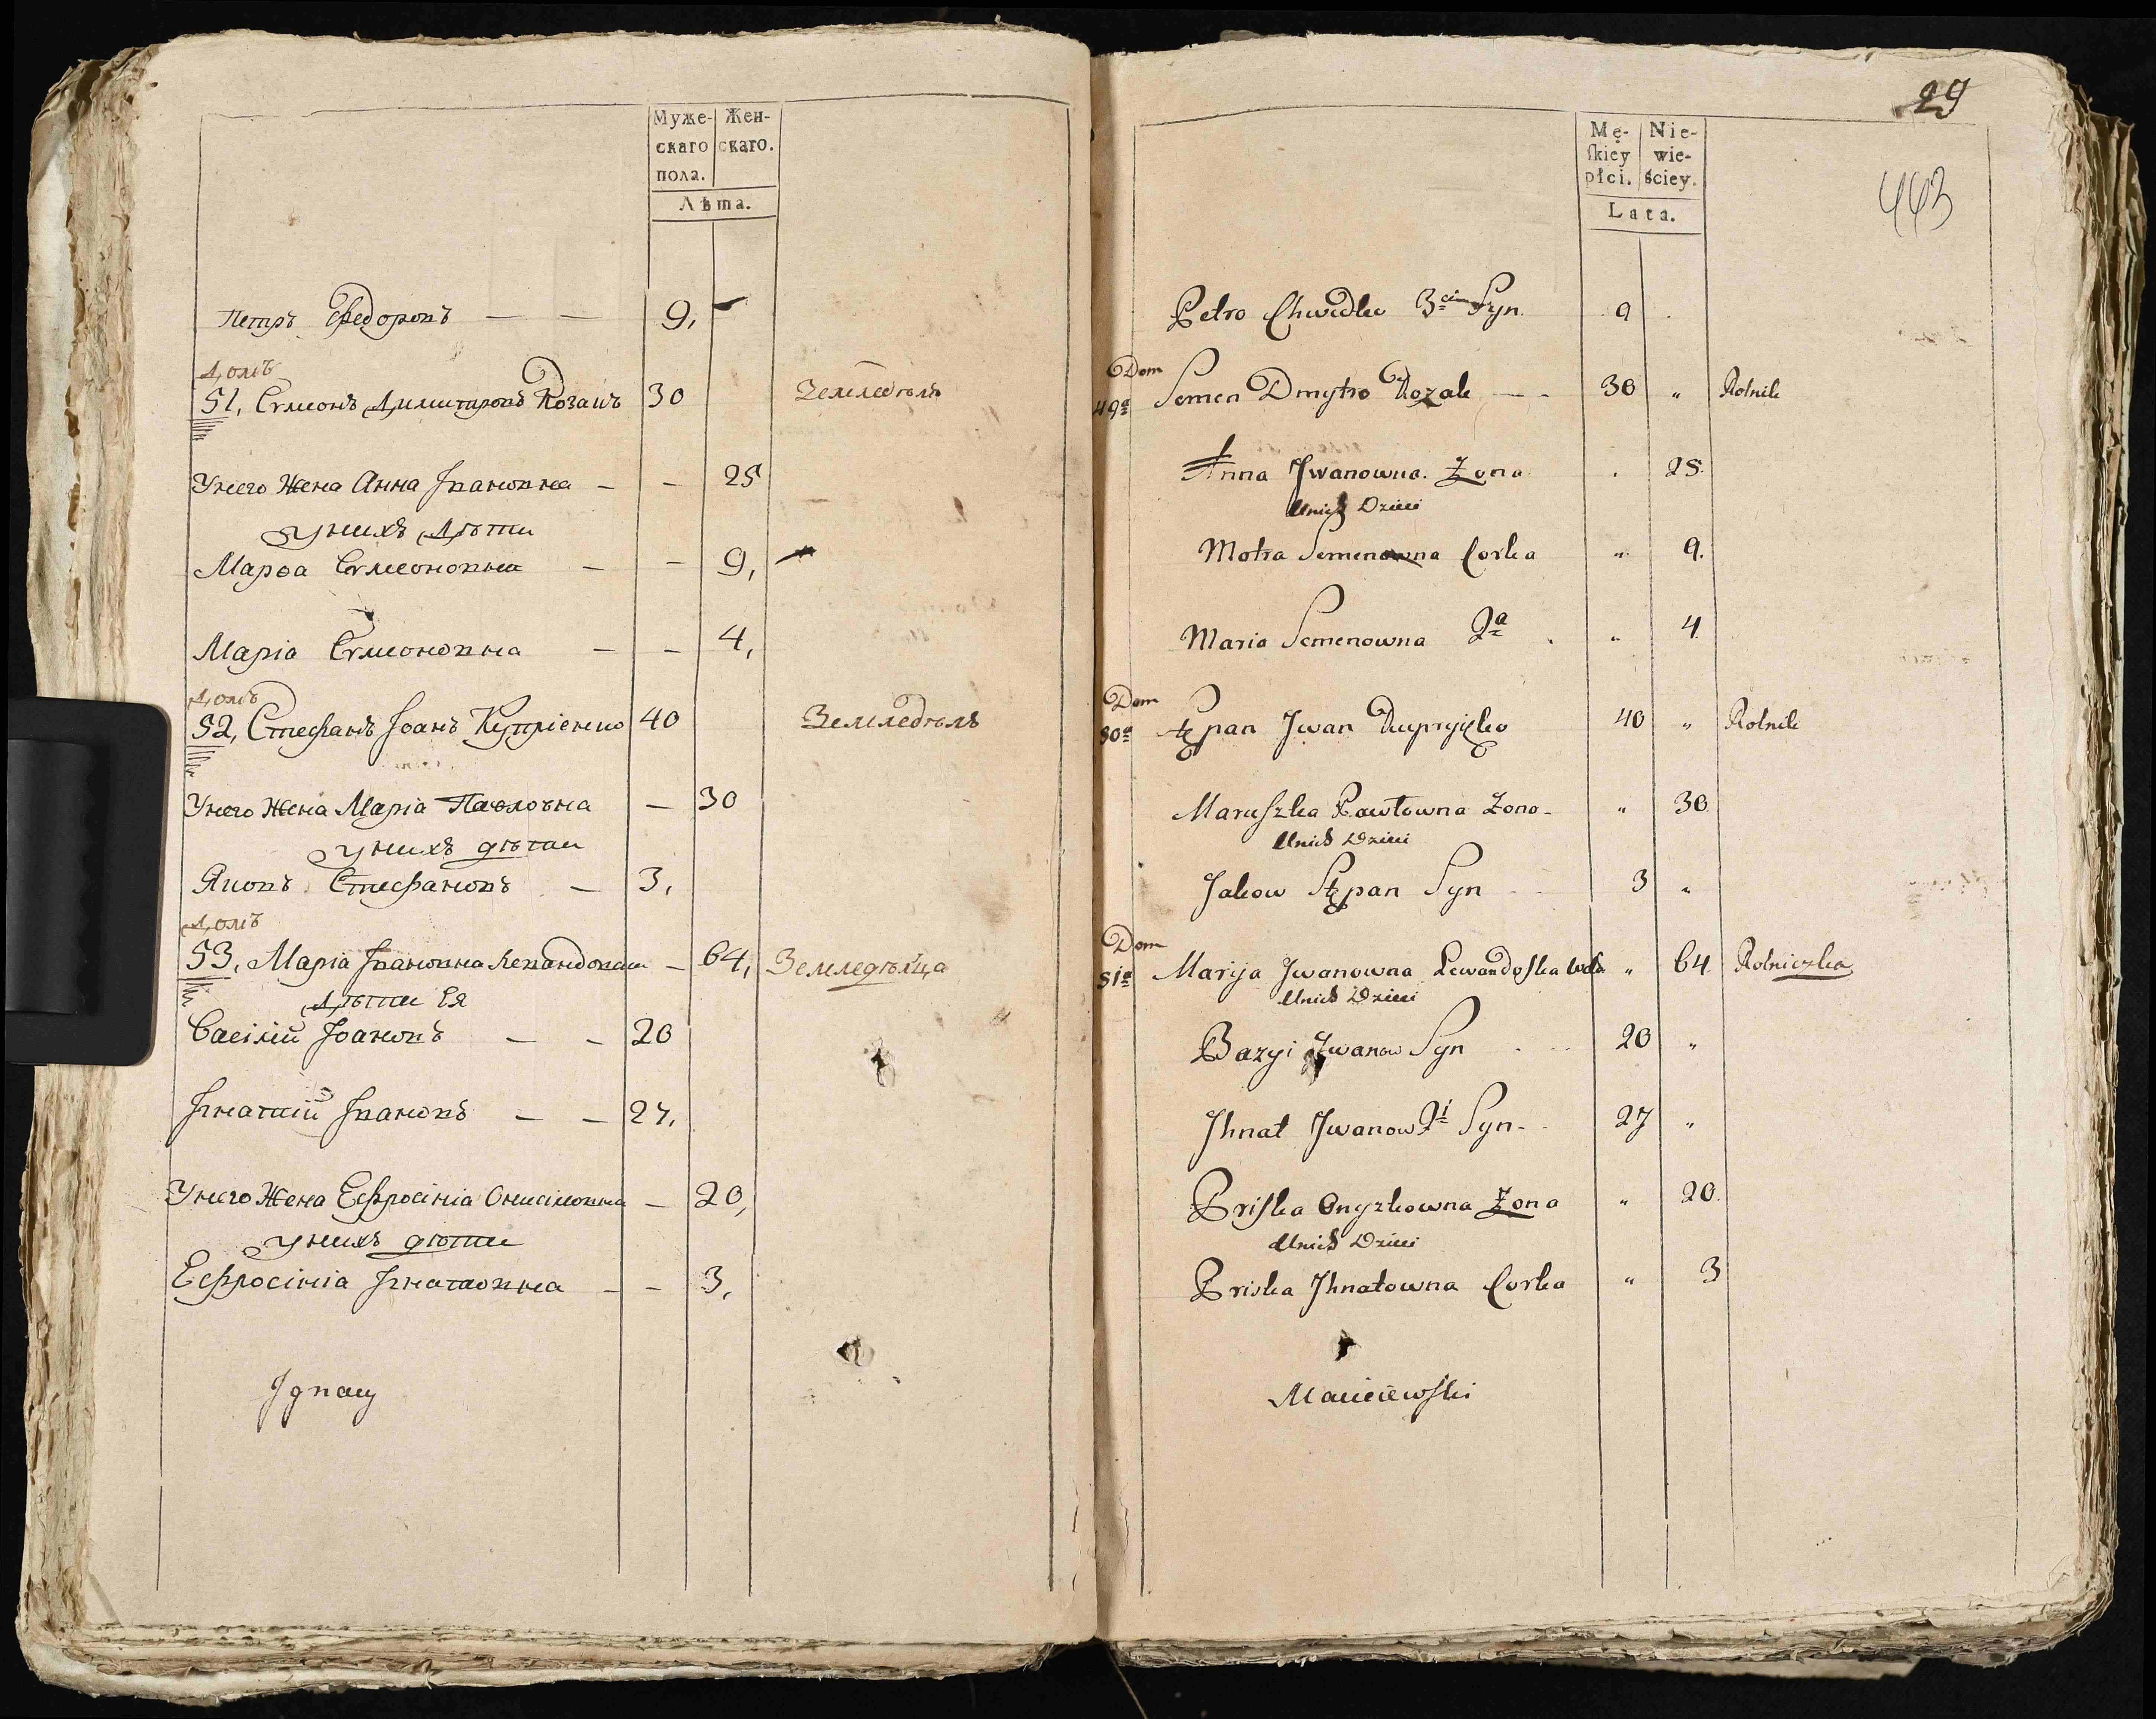 Муже-
скаго
пола.
Жен-
скаго.
Лѣта.
Петръ Федоровъ — — 9,
Домъ
51, Сѵмеонъ Димитровъ Козакъ 30 Земледѣлъ
Унего Жена Анна Івановна — — 25
Унихъ Дѣти
Марѳа Сѵмеоновна — — 9,
Маріа Сѵмеоновна — — 4,
Домъ
52, Стефанъ Іоанъ Купріенко 40 Земледѣлъ
Унего Жена Маріа Павловна — 30
Унихъ дѣти
Яковъ Стефановъ — 3,
Домъ
53, Маріа Івановна Левандовска — 64, Земледѣлца
Дѣти Ея
Василій Іоановъ — — 20
Ігнатій Івановъ — — 27,
Унего Жена Ефросініа Онисімовна — 20,
Унихъ дѣти
Ефросініа Ігнатовна — — 3,
Ignacy
29
443
Mę-
ſkiey
płci.
Nie-
wie-
ściey.
Lata.
Petro Chwedko 3ci Syn 9
Dom
49a Semen Dmytro Kozak — - 30 „ Rolnik
Anna Jwanowna. Żona . 25.
Unich Dzieci
Motra Semenowna Corka „ 9.
Maria Semenowna 2a . „ 4
Dom
50a Stępan Jwan Kupryjęko 40 „ Rolnik
Maruszka Pawłowna Żona - „ 30
Unich Dzieci
Jakow Stępan Syn 3 „
Dom
51a Marija Jwanowna Lewandoſka Wda „ 64 Rolniczka
Unich Dzieci
Bazyi Jwanow Syn 20 „
Jhnat Jwanow 2i Syn - 27 „
Priſka Onyzkowna Żona „ 20.
Unich Dzieci
Priska Jhnatowna Corka „ 3
Macieiewſki